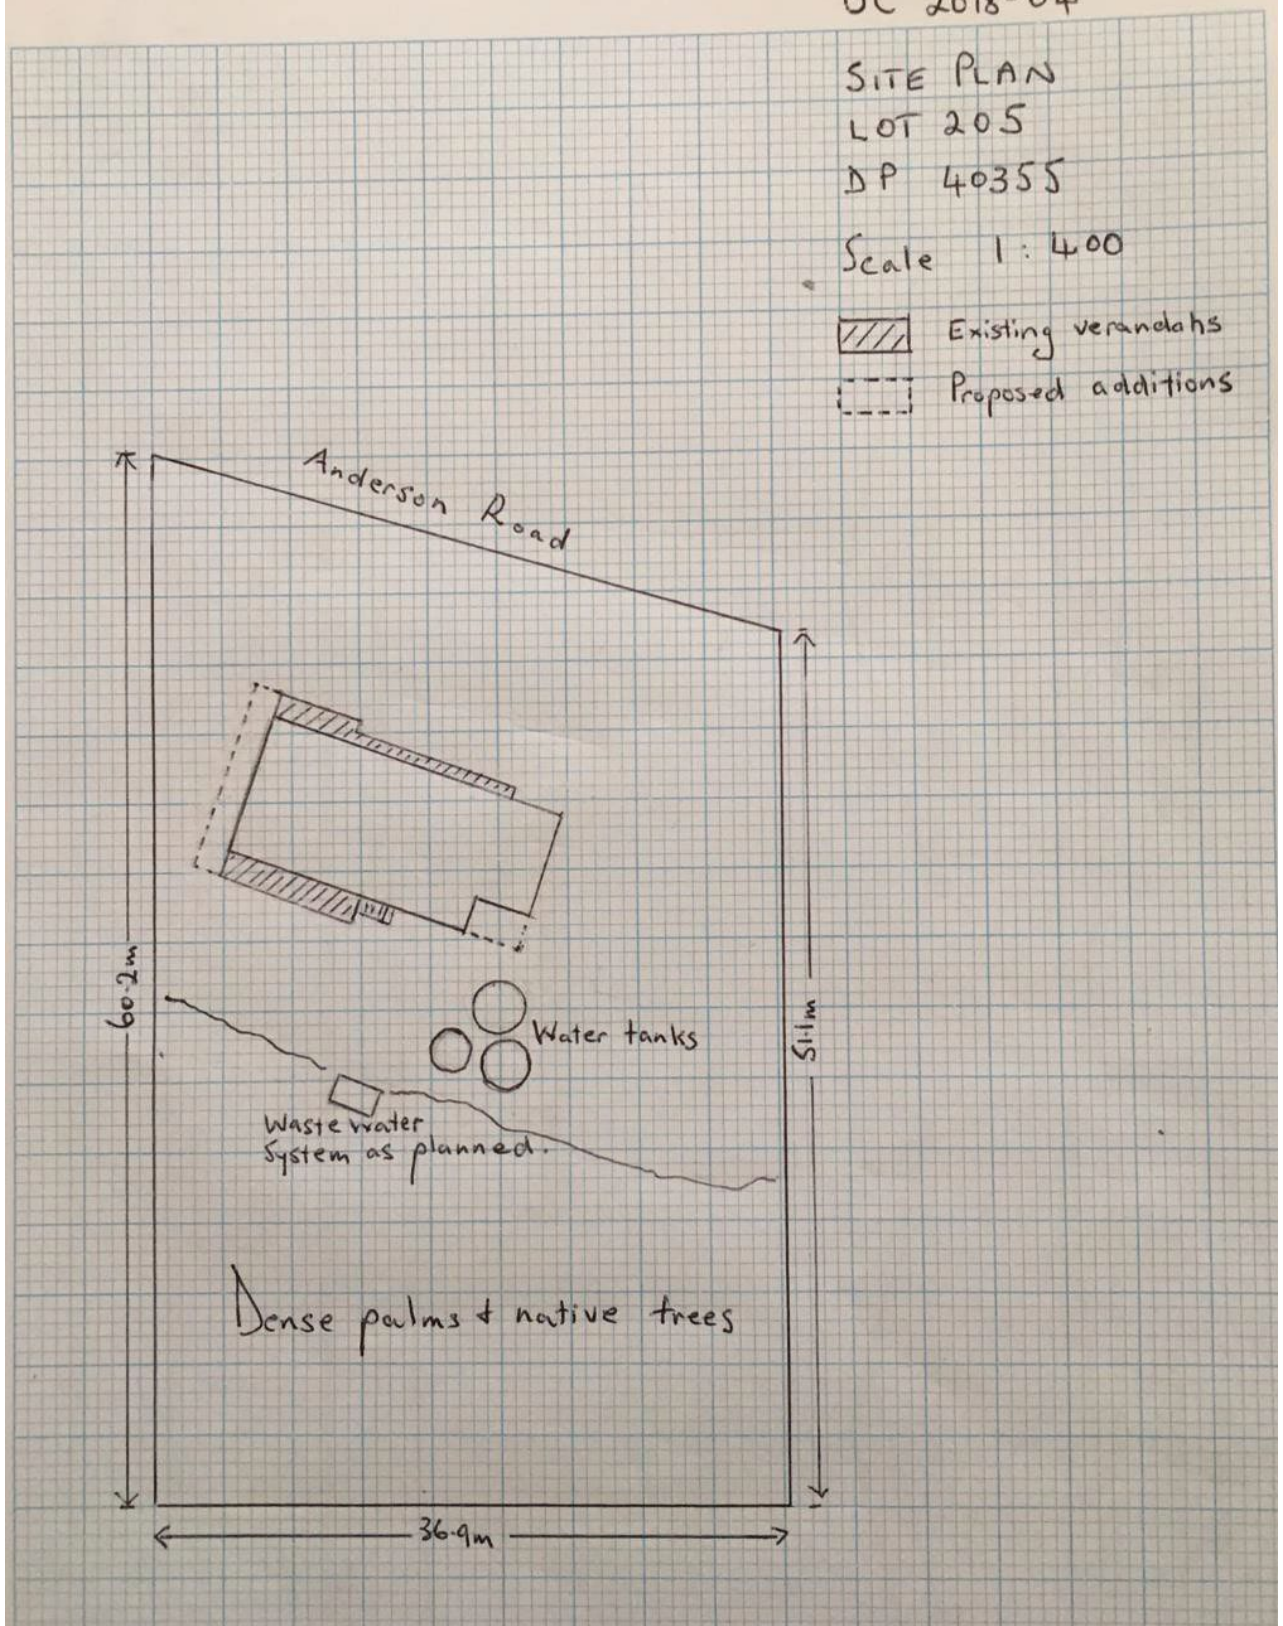 SITE PLAN
LOT 205
DP 40355
Scale 1:400
Existing verandahs
Proposed additions
Anderson Road
60.2m
51.1m
Water tanks
Waste water
System as planned.
Dense palms + native trees
36.9m